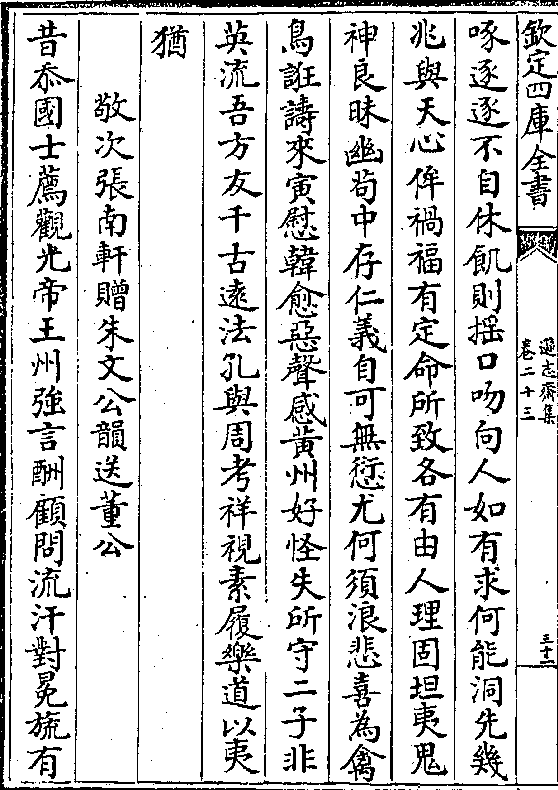 欽定四庫全書
遜志齋集
卷二十三
三十一
啄逐逐不自休飢則揺口吻向人如有求何能洞先幾
兆與天心侔禍福有定命所致各有由人理固坦夷鬼
神良昧幽茍中存仁義自可無愆尤何須浪悲喜為禽
鳥誑譸來寅慰韓愈惡聲感黄州好怪失所守二子非
英流吾方友千古逺法孔與周考祥視素履樂道以夷
猶
敬次張南軒贈朱文公韻送董公
昔忝國士薦觀光帝王州強言酬顧問流汗對冕旒有